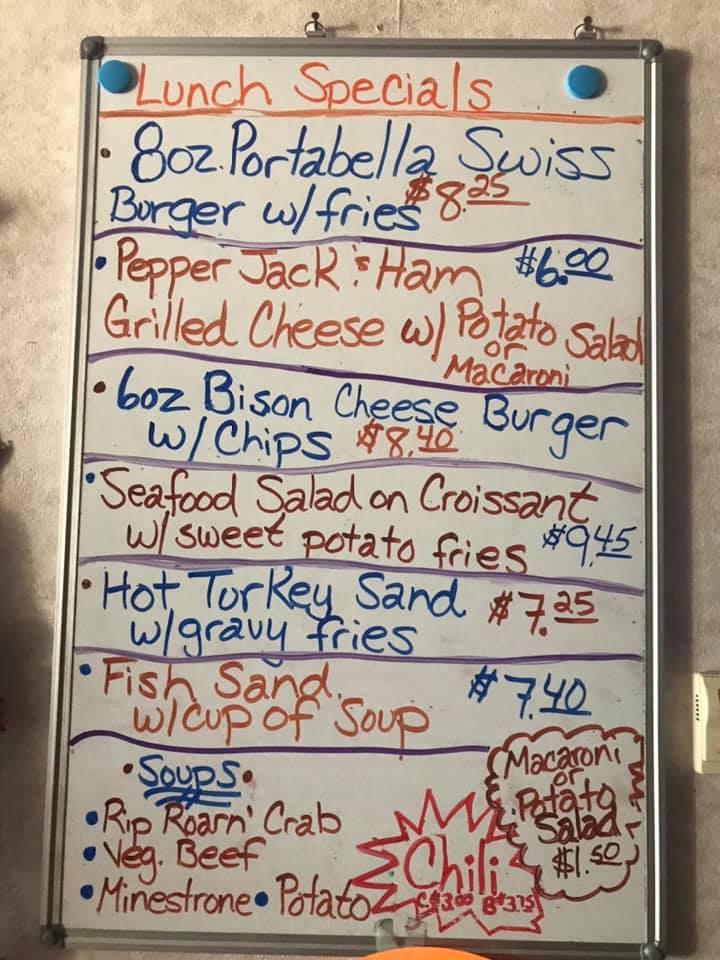 Lunch Specials
• 8oz. Portabella Swiss
Burger w/fries $8.25
• Pepper Jack & Ham $6.00
Grilled Cheese w/ Potato Salad
or
Macaroni
• 6oz Bison Cheese Burger
w/Chips $8.40
• Seafood Salad on Croissant
w/sweet potato fries $9.45
• Hot Turkey Sand $7.25
w/gravy fries
• Fish Sand. $7.40
w/cup of Soup
• Soups •
• Rip Roarn' Crab
• Veg. Beef
• Minestrone • Potato
Chili
C $3.00 B $3.75
Macaroni
or
Potato
Salad
$1.50